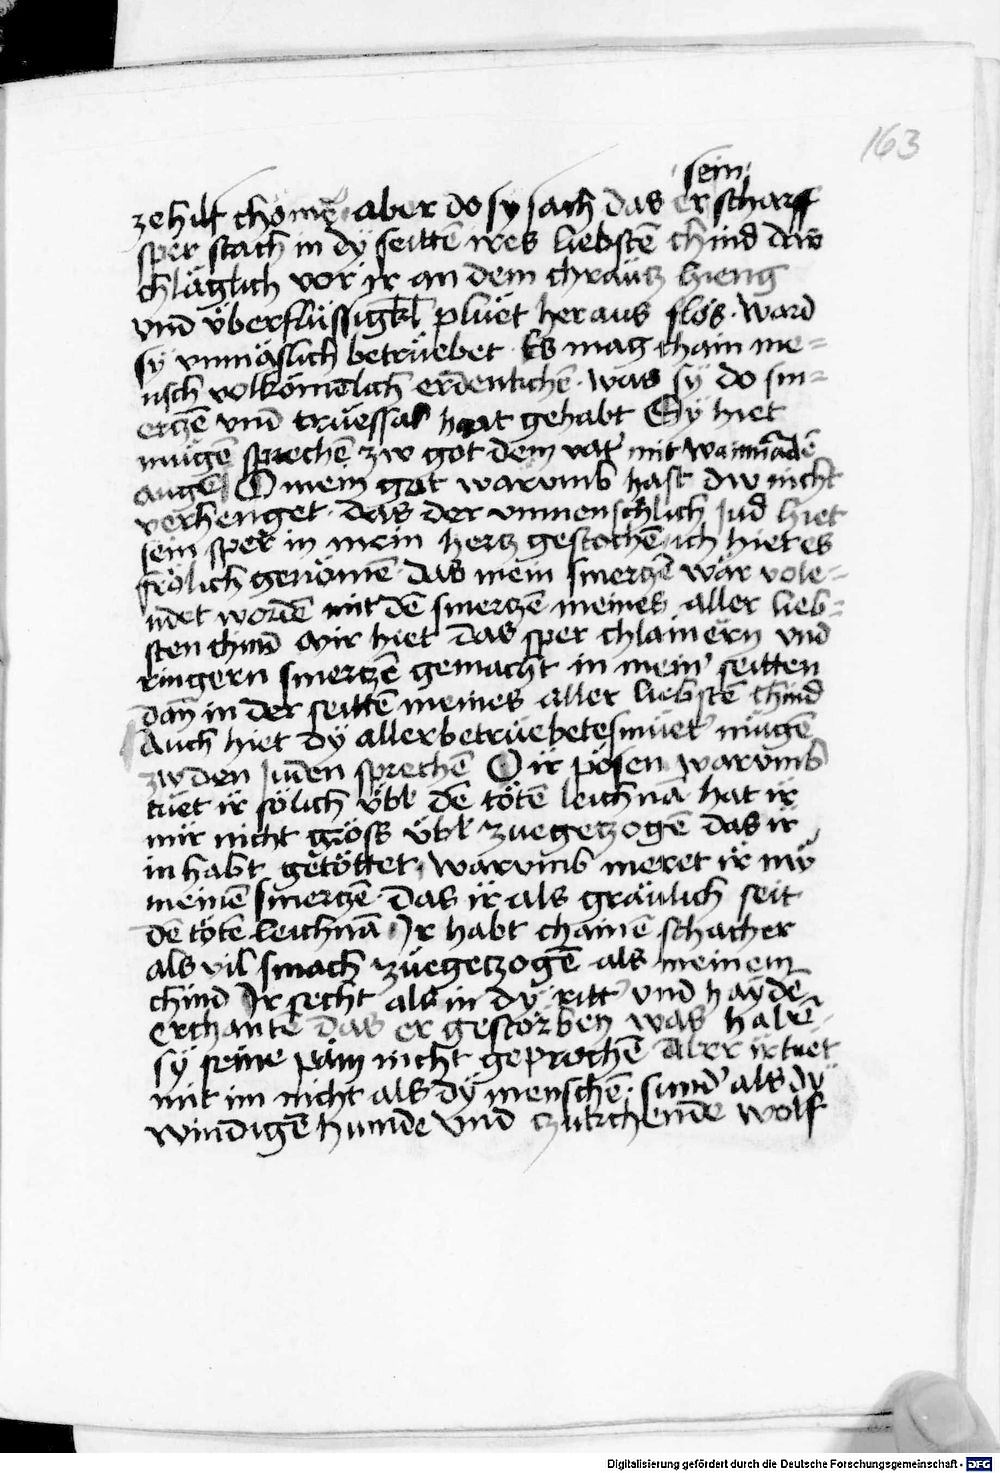 163
sein
ze hilf chömē · aber do sy sach das er scharff
sper stach in dÿ seittē ires liebstē chind daw
chläglich vor ir an dem chräutz hieng
vnd vberflüssigkl pluet heraus flos · ward
sÿ vnmäslich betruebet · Es mag chain me=
nsch volkömēlich erdenkchē · was sÿ do sm=
ertzē vnd truessal hat gehabt Sÿ hiet
mügē sprechē zw got dem vat' mit wainūdē
augē O mein got warumb hast dw nicht
verhenget · das der vnmenschlich jud hiet
sein sper in mein hertz gestochē · ich hiet es
frölich genömē · das mein smertzē wär vole=
ndet wordē mit dē smertzē meines aller lieb=
sten chind Mir hiet das sper chlainern vnd
ringern smertzē gemacht in mein' seitten
dañ in der seittē meines aller liebstē chind
Auch hiet dÿ allerbetruebetest muet' mügē
zw den juden sprechē O ir pösen warumb
tuet ir sölich vbl dē tötē leichnā hat ir
mir nicht gröss vbl zuegetzogē das ir
in habt getöttet · warumb meret ir mÿ
meinē smertzē · das ir als gräulich seit
dē tötē leichnā · Ir habt chainē schacher
als vil smach zuegetzogē als meinem
chind Ir secht als in dÿ ritt' vnd haydē
erchantē das er gestorben was habē
sÿ seine pain nicht geprochē Aber ir tuet
mit im nicht als dÿ menschē · sund' als dÿ
windigē hunde vnd czukchende wolf
Digitalisierung gefördert durch die Deutsche Forschungsgemeinschaft - DFG